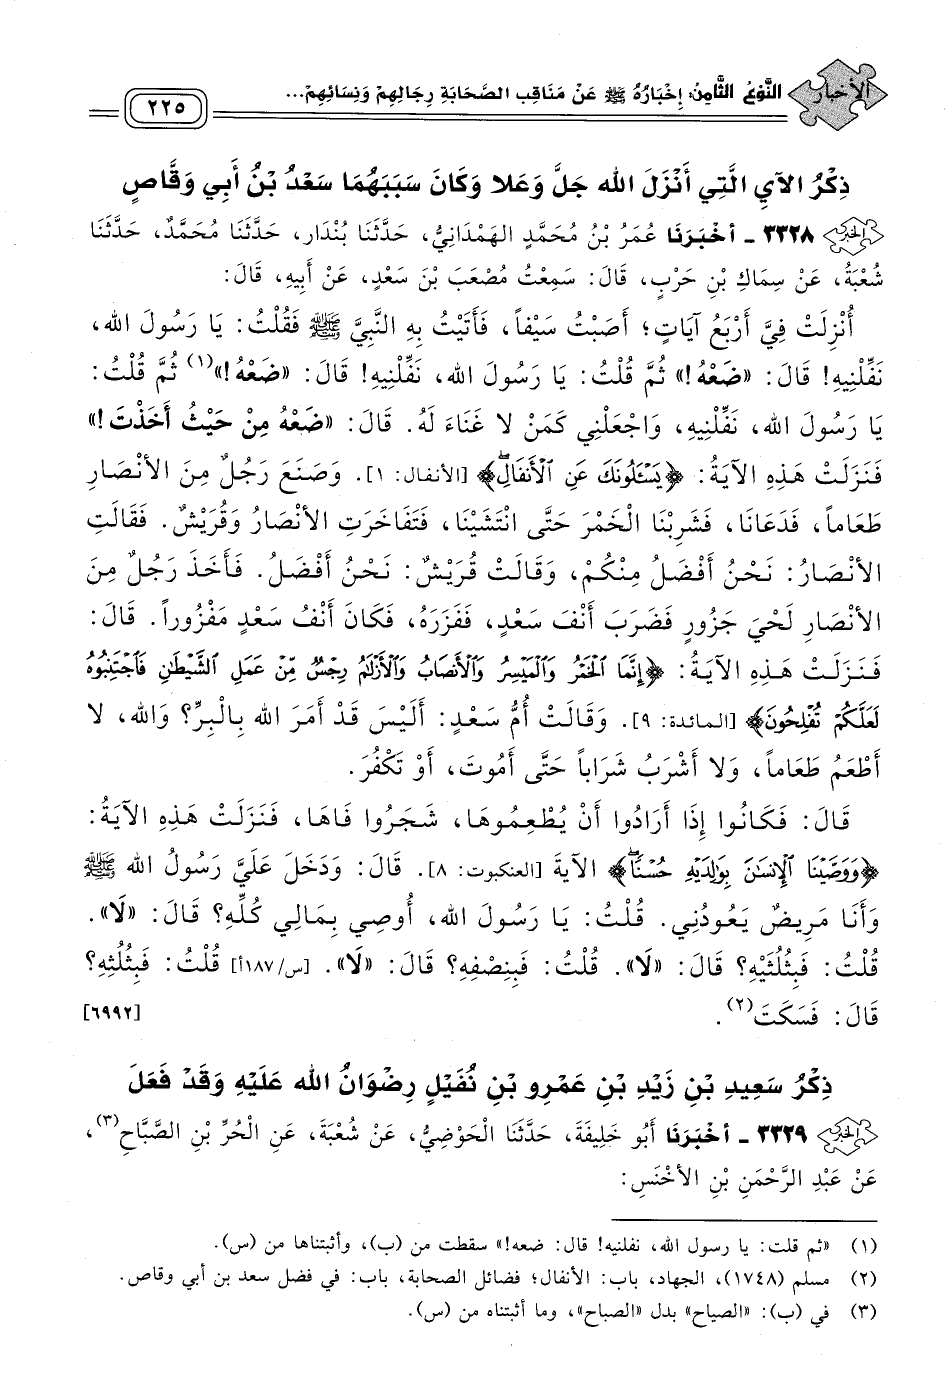 الأخبار
النَّوْعُ الثَّامِنُ: إِخْبَارُهُ ﷺ عَنْ مَنَاقِبِ الصَّحَابَةِ رِجَالِهِمْ وَنِسَائِهِمْ...
٢٢٥
ذِكْرُ الآيِ الَّتِي أَنْزَلَ الله جَلَّ وَعَلا وَكَانَ سَبَبَهُمَا سَعْدُ بْنُ أَبِي وَقَّاصٍ
٣٣٢٨ - أَخْبَرَنَا عُمَرُ بْنُ مُحَمَّدٍ الهَمْدَانِيُّ، حَدَّثَنَا بُنْدَار، حَدَّثَنَا مُحَمَّدٌ، حَدَّثَنَا
شُعْبَةُ، عَنْ سِمَاكِ بْنِ حَرْبٍ، قَالَ: سَمِعْتُ مُصْعَبَ بْنَ سَعْدٍ، عَنْ أَبِيهِ، قَالَ:
أُنْزِلَتْ فِيَّ أَرْبَعُ آيَاتٍ؛ أَصَبْتُ سَيْفاً، فَأَتَيْتُ بِهِ النَّبِيَّ ﷺ فَقُلْتُ: يَا رَسُولَ الله،
نَفِّلْنِيهِ! قَالَ: «ضَعْهُ!» ثُمَّ قُلْتُ: يَا رَسُولَ الله، نَفِّلْنِيهِ! قَالَ: «ضَعْهُ!»(١) ثُمَّ قُلْتُ:
يَا رَسُولَ الله، نَفِّلْنِيهِ، وَاجْعَلْنِي كَمَنْ لا غَنَاءَ لَهُ. قَالَ: «ضَعْهُ مِنْ حَيْثُ أَخَذْتَ!»
فَنَزَلَتْ هَذِهِ الآيَةُ: ﴿يَسْـَٔلُونَكَ عَنِ ٱلْأَنفَالِۖ﴾ [الأنفال: ١]. وَصَنَعَ رَجُلٌ مِنَ الأَنْصَارِ
طَعَاماً، فَدَعَانَا، فَشَرِبْنَا الْخَمْرَ حَتَّى انْتَشَيْنَا، فَتَفَاخَرَتِ الأَنْصَارُ وَقُرَيْشٌ. فَقَالَتِ
الأَنْصَارُ: نَحْنُ أَفْضَلُ مِنْكُمْ، وَقَالَتْ قُرَيْشٌ: نَحْنُ أَفْضَلُ. فَأَخَذَ رَجُلٌ مِنَ
الأَنْصَارِ لَحْيَ جَزُورٍ فَضَرَبَ أَنْفَ سَعْدٍ، فَفَزَرَهُ، فَكَانَ أَنْفُ سَعْدٍ مَفْزُوراً. قَالَ:
فَنَزَلَتْ هَذِهِ الآيَةُ: ﴿إِنَّمَا ٱلْخَمْرُ وَٱلْمَيْسِرُ وَٱلْأَنصَابُ وَٱلْأَزْلَٰمُ رِجْسٌ مِّنْ عَمَلِ ٱلشَّيْطَٰنِ فَٱجْتَنِبُوهُ
لَعَلَّكُمْ تُفْلِحُونَ﴾ [المائدة: ٩]. وَقَالَتْ أُمُّ سَعْدٍ: أَلَيْسَ قَدْ أَمَرَ الله بِالْبِرِّ؟ وَالله، لا
أَطْعَمُ طَعَاماً، وَلا أَشْرَبُ شَرَاباً حَتَّى أَمُوتَ، أَوْ تَكْفُرَ.
قَالَ: فَكَانُوا إِذَا أَرَادُوا أَنْ يُطْعِمُوهَا، شَجَرُوا فَاهَا، فَنَزَلَتْ هَذِهِ الآيَةُ:
﴿وَوَصَّيْنَا ٱلْإِنسَٰنَ بِوَٰلِدَيْهِ حُسْنًاۖ﴾ الآيَةَ [العنكبوت: ٨]. قَالَ: وَدَخَلَ عَلَيَّ رَسُولُ الله ﷺ
وَأَنَا مَرِيضٌ يَعُودُنِي. قُلْتُ: يَا رَسُولَ الله، أُوصِي بِمَالِي كُلِّهِ؟ قَالَ: «لَا».
قُلْتُ: فَبِثُلُثَيْهِ؟ قَالَ: «لَا». قُلْتُ: فَبِنِصْفِهِ؟ قَالَ: «لَا». [س/١٨٧أ] قُلْتُ: فَبِثُلُثِهِ؟
قَالَ: فَسَكَتَ(٢). [٦٩٩٢]
ذِكْرُ سَعِيدِ بْنِ زَيْدِ بْنِ عَمْرِو بْنِ نُفَيْلٍ رِضْوَانُ الله عَلَيْهِ وَقَدْ فَعَلَ
٣٣٢٩ - أَخْبَرَنَا أَبُو خَلِيفَةَ، حَدَّثَنَا الْحَوْضِيُّ، عَنْ شُعْبَةَ، عَنِ الْحُرِّ بْنِ الصَّبَّاحِ(٣)،
عَنْ عَبْدِ الرَّحْمَنِ بْنِ الأَخْنَسِ:
(١) «ثم قلت: يا رسول الله، نفلنيه! قال: ضعه!» سقطت من (ب)، وأثبتناها من (س).
(٢) مسلم (١٧٤٨)، الجهاد، باب: الأنفال؛ فضائل الصحابة، باب: في فضل سعد بن أبي وقاص.
(٣) في (ب): «الصياح» بدل «الصباح»، وما أثبتناه من (س).